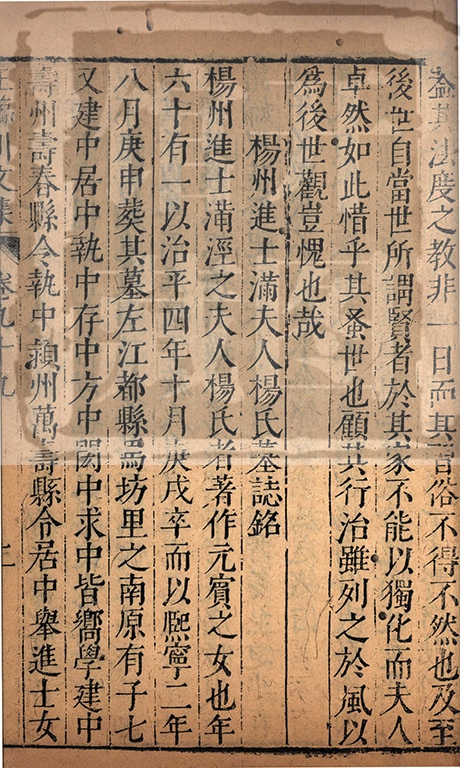 葢其法度之教非一日而其習俗不得不然也及至
後世自當世所謂賢者於其家不能以獨化而夫人
卓然如此惜乎其蚤世也顧其行治雖列之於風以
爲後世觀豈愧也哉
楊州進士滿夫人楊氏墓誌銘
楊州進士滿涇之夫人楊氏者著作元賓之女也年
六十有一以治平四年十月庚戌卒而以熙寧二年
八月庚申葬其墓左江都縣馬坊里之南原有子七
又建中居中執中存中方中閎中求中皆嚮學建中
壽州壽春縣令執中潁州萬壽縣令居中舉進士女
王臨川文集 卷九十九 二